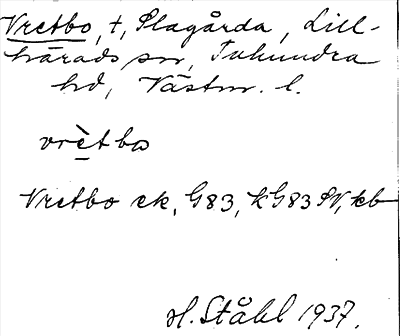 Vretbo, t, Slagårda, Lill-
härads sn, Tuhundra
hd, Västm. l.
vrètba
Vretbo ek, G83, kG83 SV, kb
H. Ståhl 1937.